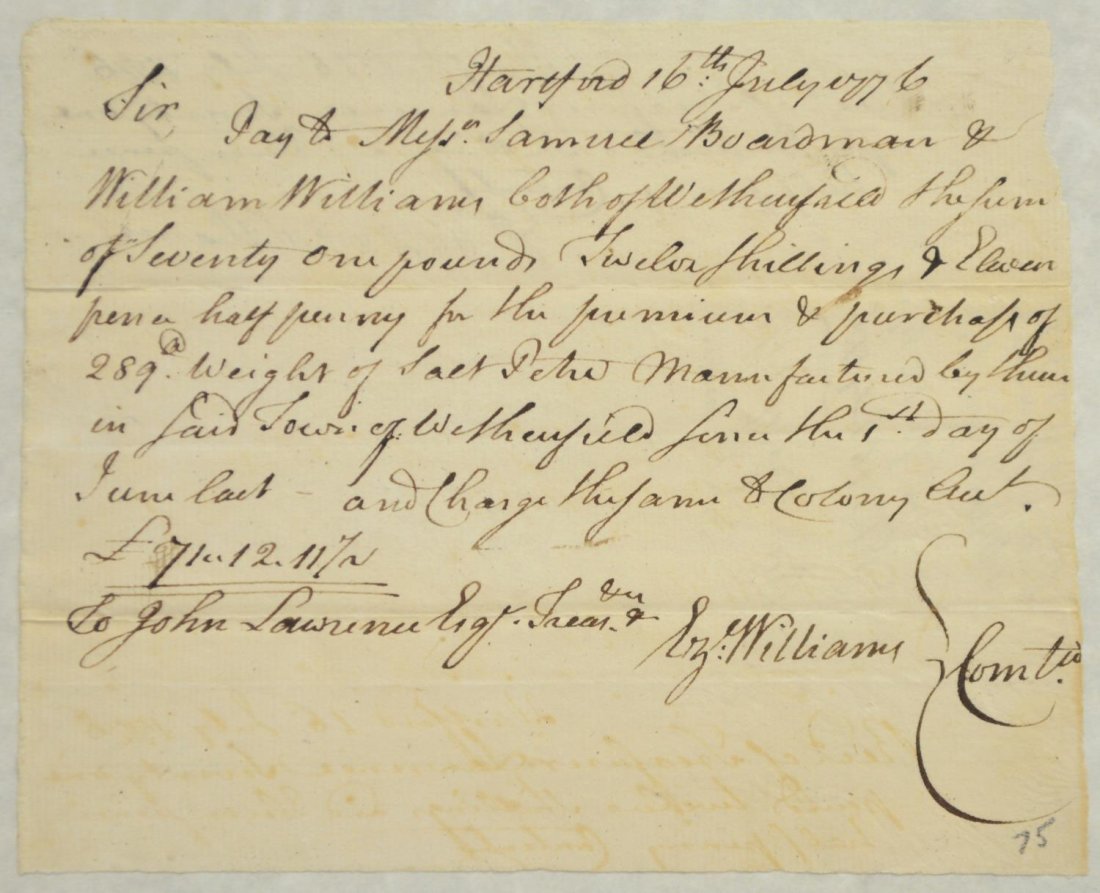 Hartford 16th: July 1776
Sir
Pay to Messrs. Samuel Boardman &
William Williams both of Wethersfield the sum
of Seventy One pounds Twelve shillings & Eleven
pence half penny for the premium & purchase of
289 lb. Weight of Salt Petre Manufactured by them
in said Town of Wethersfield since the 1st. day of
June last – and Charge the same to Colony Acct.
£71..12..11½
To John Lawrence Esqr. Treasr. &
Ez. Williams } Comtee.
75